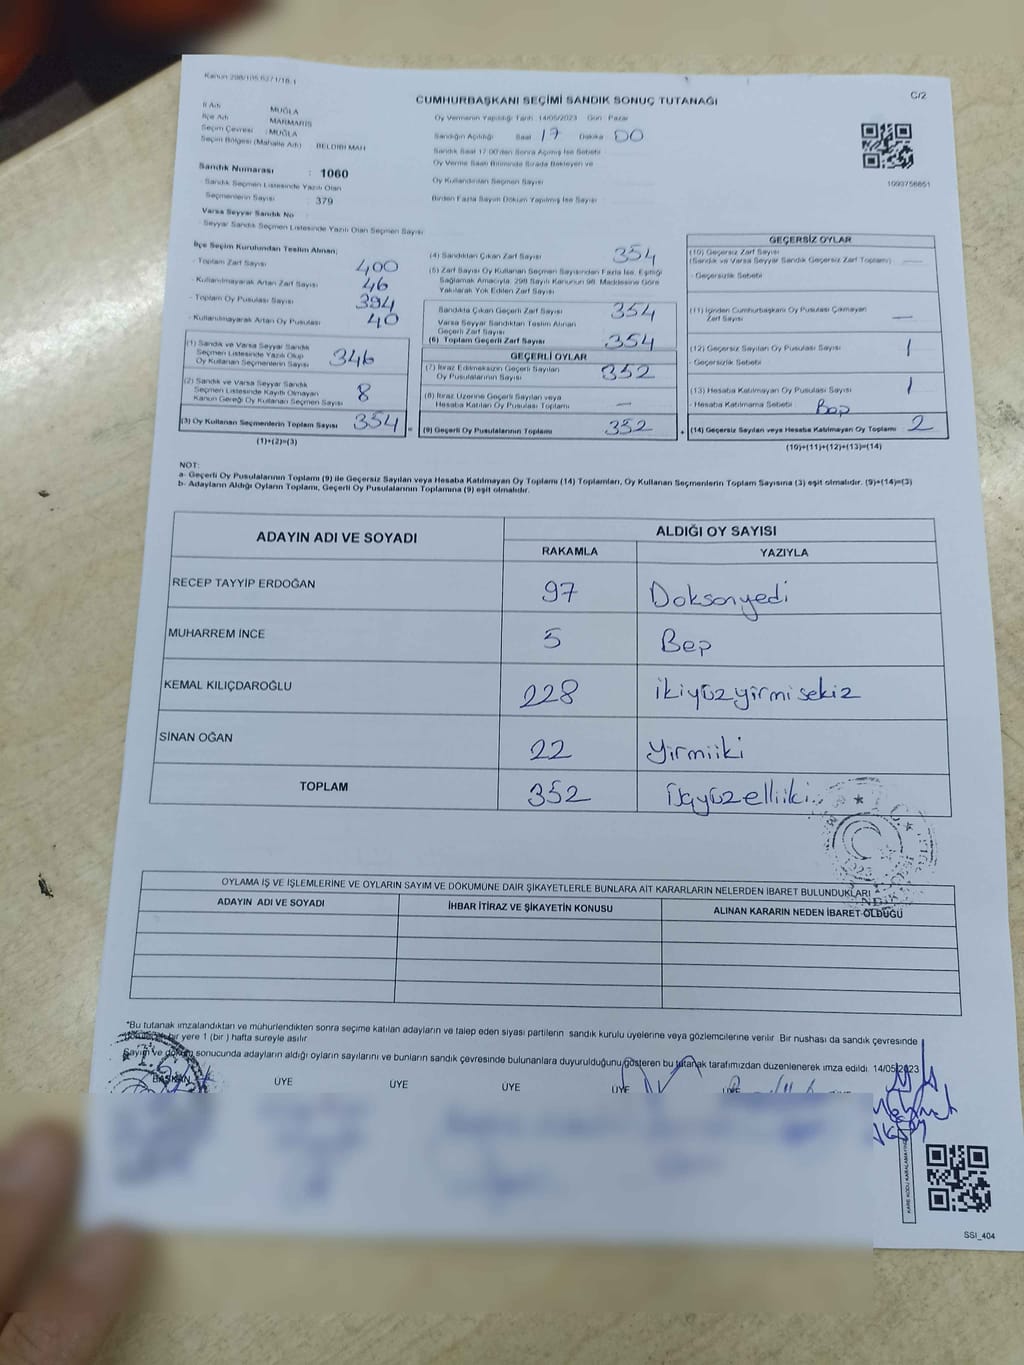 Kanun 298/105,6271/16.1
CUMHURBAŞKANI SEÇİMİ SANDIK SONUÇ TUTANAĞI
C/2
İl Adı : MUĞLA
İlçe Adı : MARMARİS
Seçim Çevresi : MUĞLA
Seçim Bölgesi (Mahalle Adı) BELDİBİ MAH
Oy Vermenin Yapıldığı Tarih: 14/05/2023 Gün : Pazar
Sandığın Açıldığı Saat 17 Dakika 00
Sandık Saat 17:00'den Sonra Açılmış İse Sebebi
Oy Verme Saati Bitiminde Sırada Bekleyen ve
Oy Kullandırılan Seçmen Sayısı
Birden Fazla Sayım Döküm Yapılmış İse Sayısı
1093756651
Sandık Numarası : 1060
Sandık Seçmen Listesinde Yazılı Olan
Seçmenlerin Sayısı : 379
Varsa Seyyar Sandık No :
Seyyar Sandık Seçmen Listesinde Yazılı Olan Seçmen Sayısı
İlçe Seçim Kurulundan Teslim Alınan;
- Toplam Zarf Sayısı 400
- Kullanılmayarak Artan Zarf Sayısı 46
- Toplam Oy Pusulası Sayısı 394
- Kullanılmayarak Artan Oy Pusulası 40
(1) Sandık ve Varsa Seyyar Sandık
Seçmen Listesinde Yazılı Olup
Oy Kullanan Seçmenlerin Sayısı 346
(2) Sandık ve Varsa Seyyar Sandık
Seçmen Listesinde Kayıtlı Olmayan
Kanun Gereği Oy Kullanan Seçmen Sayısı 8
(3) Oy Kullanan Seçmenlerin Toplam Sayısı 354 =
(1)+(2)=(3)
(4) Sandıktan Çıkan Zarf Sayısı 354
(5) Zarf Sayısı Oy Kullanan Seçmen Sayısından Fazla İse, Eşitliği
Sağlamak Amacıyla; 298 Sayılı Kanunun 98. Maddesine Göre
Yakılarak Yok Edilen Zarf Sayısı
Sandıkta Çıkan Geçerli Zarf Sayısı 354
Varsa Seyyar Sandıktan Teslim Alınan
Geçerli Zarf Sayısı
(6) Toplam Geçerli Zarf Sayısı 354
GEÇERLİ OYLAR
(7) İtiraz Edilmeksizin Geçerli Sayılan
Oy Pusulalarının Sayısı 352
(8) İtiraz Üzerine Geçerli Sayılan veya
Hesaba Katılan Oy Pusulası Toplamı —
(9) Geçerli Oy Pusulalarının Toplamı 352 +
GEÇERSİZ OYLAR
(10) Geçersiz Zarf Sayısı
(Sandık ve Varsa Seyyar Sandık Geçersiz Zarf Toplamı) —
- Geçersizlik Sebebi
(11) İçinden Cumhurbaşkanı Oy Pusulası Çıkmayan
Zarf Sayısı —
(12) Geçersiz Sayılan Oy Pusulası Sayısı 1
- Geçersizlik Sebebi
(13) Hesaba Katılmayan Oy Pusulası Sayısı 1
- Hesaba Katılmama Sebebi Boş
(14) Geçersiz Sayılan veya Hesaba Katılmayan Oy Toplamı 2
(10)+(11)+(12)+(13)=(14)
NOT:
a- Geçerli Oy Pusulalarının Toplamı (9) ile Geçersiz Sayılan veya Hesaba Katılmayan Oy Toplamı (14) Toplamları, Oy Kullanan Seçmenlerin Toplam Sayısına (3) eşit olmalıdır. (9)+(14)=(3)
b- Adayların Aldığı Oyların Toplamı, Geçerli Oy Pusulalarının Toplamına (9) eşit olmalıdır.
ADAYIN ADI VE SOYADI
ALDIĞI OY SAYISI
RAKAMLA YAZIYLA
RECEP TAYYİP ERDOĞAN 97 Doksanyedi
MUHARREM İNCE 5 Beş
KEMAL KILIÇDAROĞLU 228 ikiyüzyirmisekiz
SİNAN OĞAN 22 yirmiiki
TOPLAM 352 Üçyüzelliiki
OYLAMA İŞ VE İŞLEMLERİNE VE OYLARIN SAYIM VE DÖKÜMÜNE DAİR ŞİKAYETLERLE BUNLARA AİT KARARLARIN NELERDEN İBARET BULUNDUKLARI
ADAYIN ADI VE SOYADI İHBAR İTİRAZ VE ŞİKAYETİN KONUSU ALINAN KARARIN NEDEN İBARET OLDUĞU
*Bu tutanak imzalandıktan ve mühürlendikten sonra seçime katılan adayların ve talep eden siyasi partilerin sandık kurulu üyelerine veya gözlemcilerine verilir. Bir nüshası da sandık çevresinde
bir yere 1 (bir) hafta süreyle asılır
Sayım ve döküm sonucunda adayların aldığı oyların sayılarını ve bunların sandık çevresinde bulunanlara duyurulduğunu gösteren bu tutanak tarafımızdan düzenlenerek imza edildi. 14/05/2023
BAŞKAN ÜYE ÜYE ÜYE ÜYE ÜYE
Mehmet
SSI_404